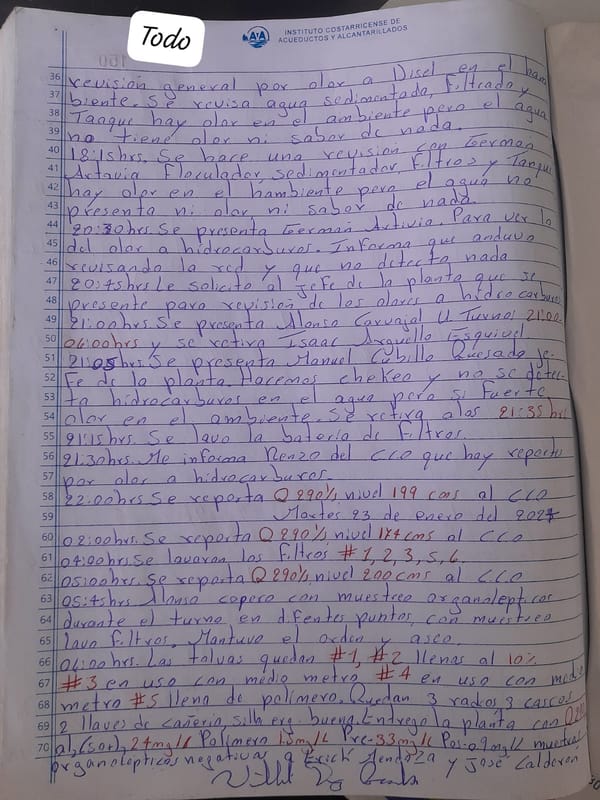 Todo
AyA
INSTITUTO COSTARRICENSE DE
ACUEDUCTOS Y ALCANTARILLADOS
36 revisión general por olor a Disel en el ham
37 biente. Se revisa agua sedimentada, filtrada y
38 Tanque hay olor en el ambiente pero el agua
39 no tiene olor ni sabor de nada.
40 18:15hrs. Se hace una revisión con German
41 Artavia Floculador, sedimentador, Filtros y Tanque
42 hay olor en el hambiente pero el agua no
43 presenta ni olor ni sabor de nada.
44 20:30hrs. Se presenta German Artivia. Para ver lo
45 del olor a hidrocarburos. Informa que anduvo
46 revisando la red y que no detecto nada
47 20:45hrs Le solicito al jefe de la planta que se
48 presente para revisión de los olores a hidrocarburos
49 21:00hrs. Se presenta Alonso Carvajal U Turno: 21:00-
50 06:00hrs y se retira Isaac Arguello Esquivel
51 21:05hrs. Se presenta Manuel Cubillo Quesada Je-
52 Fe de la planta. Hacemos chekeo y no se detec-
53 ta hidrocarburos en el agua pero si fuerte
54 olor en el ambiente. Se retira a las 21:35hrs
55 21:15hrs. Se lavo la bateria de filtros.
56 21:30hrs. Me informa Renzo del CCO que hay reporte
57 por olor a hidrocarburos.
58 22:00hrs Se reporta Q 290%, nivel 199 cms al CCO
59 Martes 23 de enero del 2024
60 02:00hrs. Se reporta Q 290%, nivel 174 cms al CCO
61 04:00hrs. Se lavaron los filtros #1, 2, 3, 5, 6.
62 05:00hrs. Se reporta Q 290%, nivel 200 cms al CCO
63 05:45hrs Alonso copero con muestreo organolepticos
64 durante el turno en difentes puntos, con muestreo
65 lavo filtros. Mantuvo el orden y aseo.
66 06:00hrs. Las tolvas quedan #1, #2 llenas al 10%
67 #3 en uso con medio metro #4 en uso con medio
68 metro #5 llena de polimero. Quedan 3 rados, 3 cascos
69 2 llaves de cañeria, silla erg. buena. Entrego la planta con Q 290
70 24 mg/L Polimero Pre-33 mg/L Pos-0.9 mg/L muestras
organolepticos negativas a Erick Mendoza y José Calderón